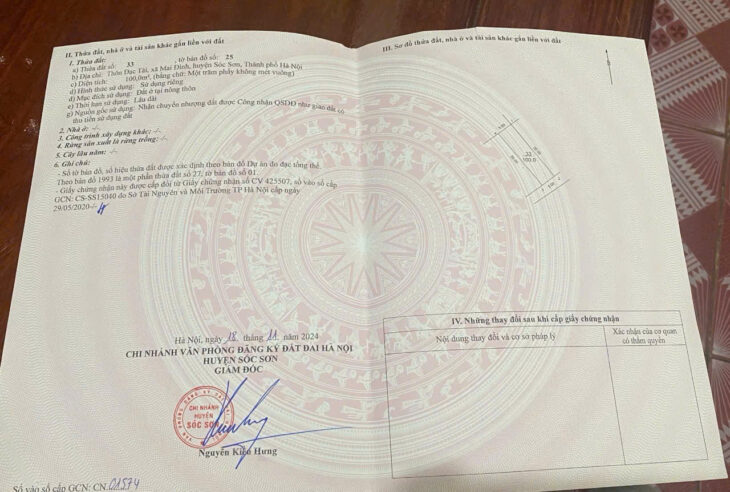 II. Thửa đất, nhà ở và tài sản khác gắn liền với đất
1. Thửa đất:
a) Thửa đất số: 33 , tờ bản đồ số: 25
b) Địa chỉ: Thôn Dạc Tài, xã Mai Đình, huyện Sóc Sơn, Thành phố Hà Nội
c) Diện tích: 100,0m², (bằng chữ: Một trăm phẩy không mét vuông)
d) Hình thức sử dụng: Sử dụng riêng
đ) Mục đích sử dụng: Đất ở tại nông thôn
e) Thời hạn sử dụng: Lâu dài
g) Nguồn gốc sử dụng: Nhận chuyển nhượng đất được Công nhận QSDĐ như giao đất có
thu tiền sử dụng đất
2. Nhà ở: -/-
3. Công trình xây dựng khác: -/-
4. Rừng sản xuất là rừng trồng: -/-
5. Cây lâu năm: -/-
6. Ghi chú:
- Số tờ bản đồ, số hiệu thửa đất được xác định theo bản đồ Dự án đo đạc tổng thể.
Theo bản đồ 1993 là một phần thửa đất số 27, tờ bản đồ số 01.
- Giấy chứng nhận này được cấp đổi từ Giấy chứng nhận số CV 425507, số vào sổ cấp
GCN: CS-SS15040 do Sở Tài Nguyên và Môi Trường TP Hà Nội cấp ngày
29/05/2020-/-
Hà Nội, ngày 18 tháng 11 năm 2024
CHI NHÁNH VĂN PHÒNG ĐĂNG KÝ ĐẤT ĐAI HÀ NỘI
HUYỆN SÓC SƠN
GIÁM ĐỐC
CHI NHÁNH
HUYỆN
SÓC SƠN
Nguyễn Kiều Hưng
Số vào sổ cấp GCN: CN.01574
III. Sơ đồ thửa đất, nhà ở và tài sản khác gắn liền với đất
33
100.0
IV. Những thay đổi sau khi cấp giấy chứng nhận
Nội dung thay đổi và cơ sở pháp lý
Xác nhận của cơ quan
có thẩm quyền